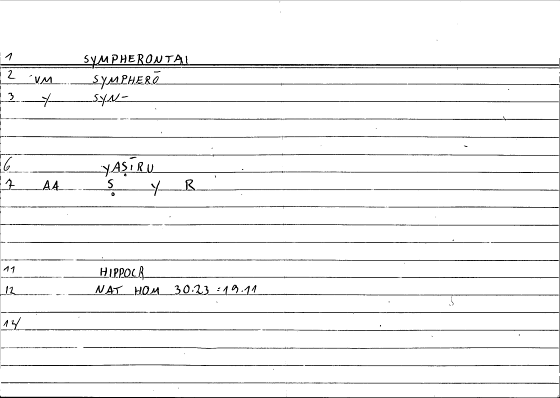 1 SYMPHERONTAI
2 VM SYMPHERŌ
3 Y SYN-
6 YAṢĪRU
7 AA Ṣ Y R
11 HIPPOCR
12 NAT HOM 30.23 : 19.11
14